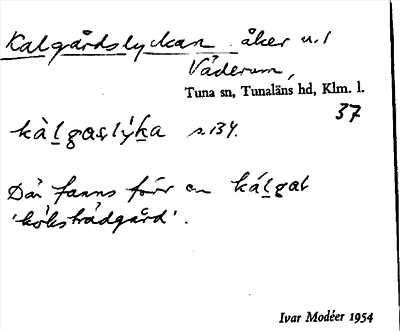 Kalgårdslyckan åker u. 1
Våderum,
Tuna sn, Tunaläns hd, Klm. l.
37
kàḻgaslýḵa s. 134.
Där fanns förr en káḻgaḷ
'köksträdgård'.
Ivar Modéer 1954